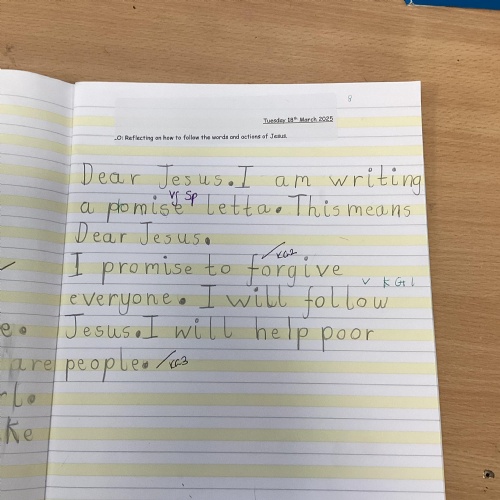 8
Tuesday 18th March 2025
LO: Reflecting on how to follow the words and actions of Jesus.
Dear Jesus. I am writing
vf sp
a promise letta. This means
Dear Jesus.
KG2
I promise to forgive
KG1
everyone. I will follow
e. Jesus. I will help poor
are people. KG3
rl.
ke